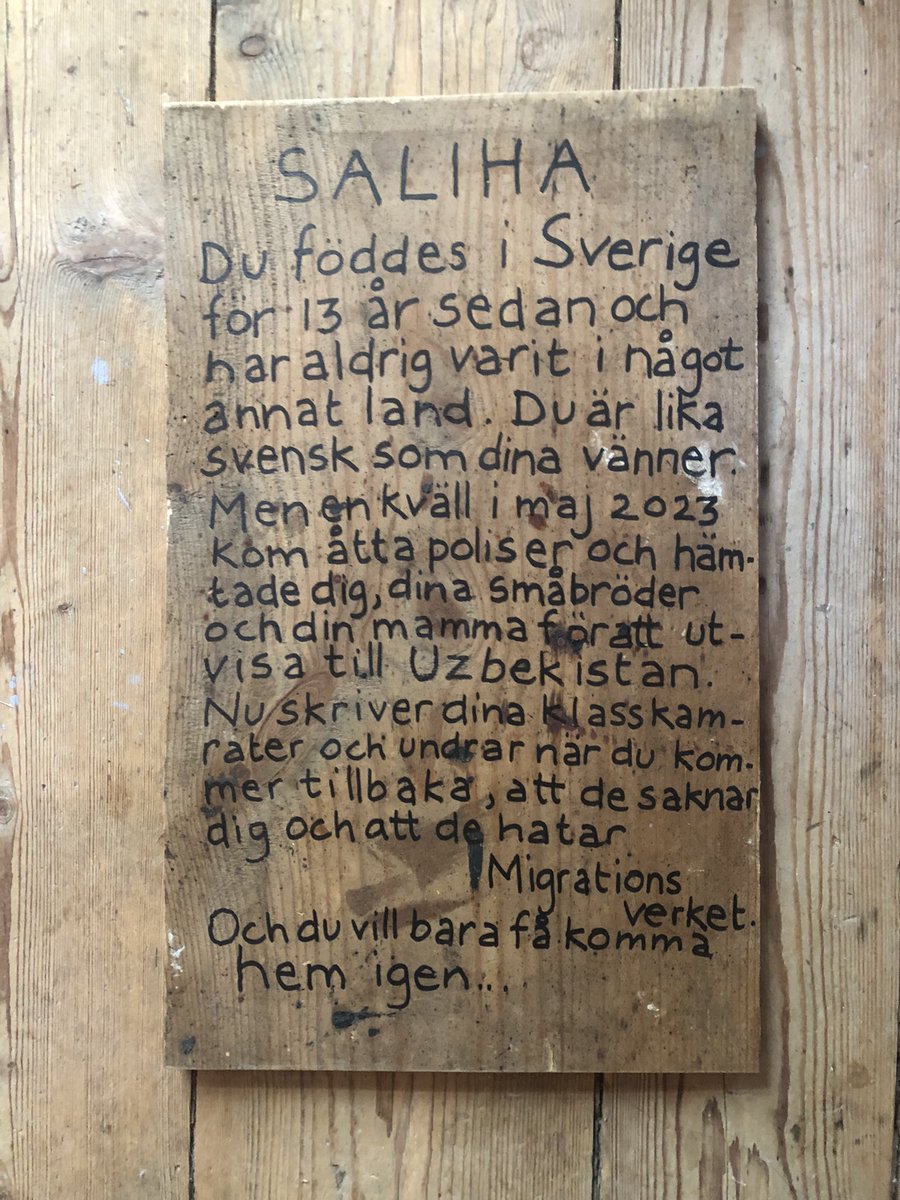 SALIHA
Du föddes i Sverige
för 13 år sedan och
har aldrig varit i något
annat land. Du är lika
svensk som dina vänner.
Men en kväll i maj 2023
kom åtta poliser och häm-
tade dig, dina småbröder
och din mamma för att ut-
visa till Uzbekistan.
Nu skriver dina klasskam-
rater och undrar när du kom-
mer tillbaka, att de saknar
dig och att de hatar
Migrations
verket.
Och du vill bara få komma
hem igen...